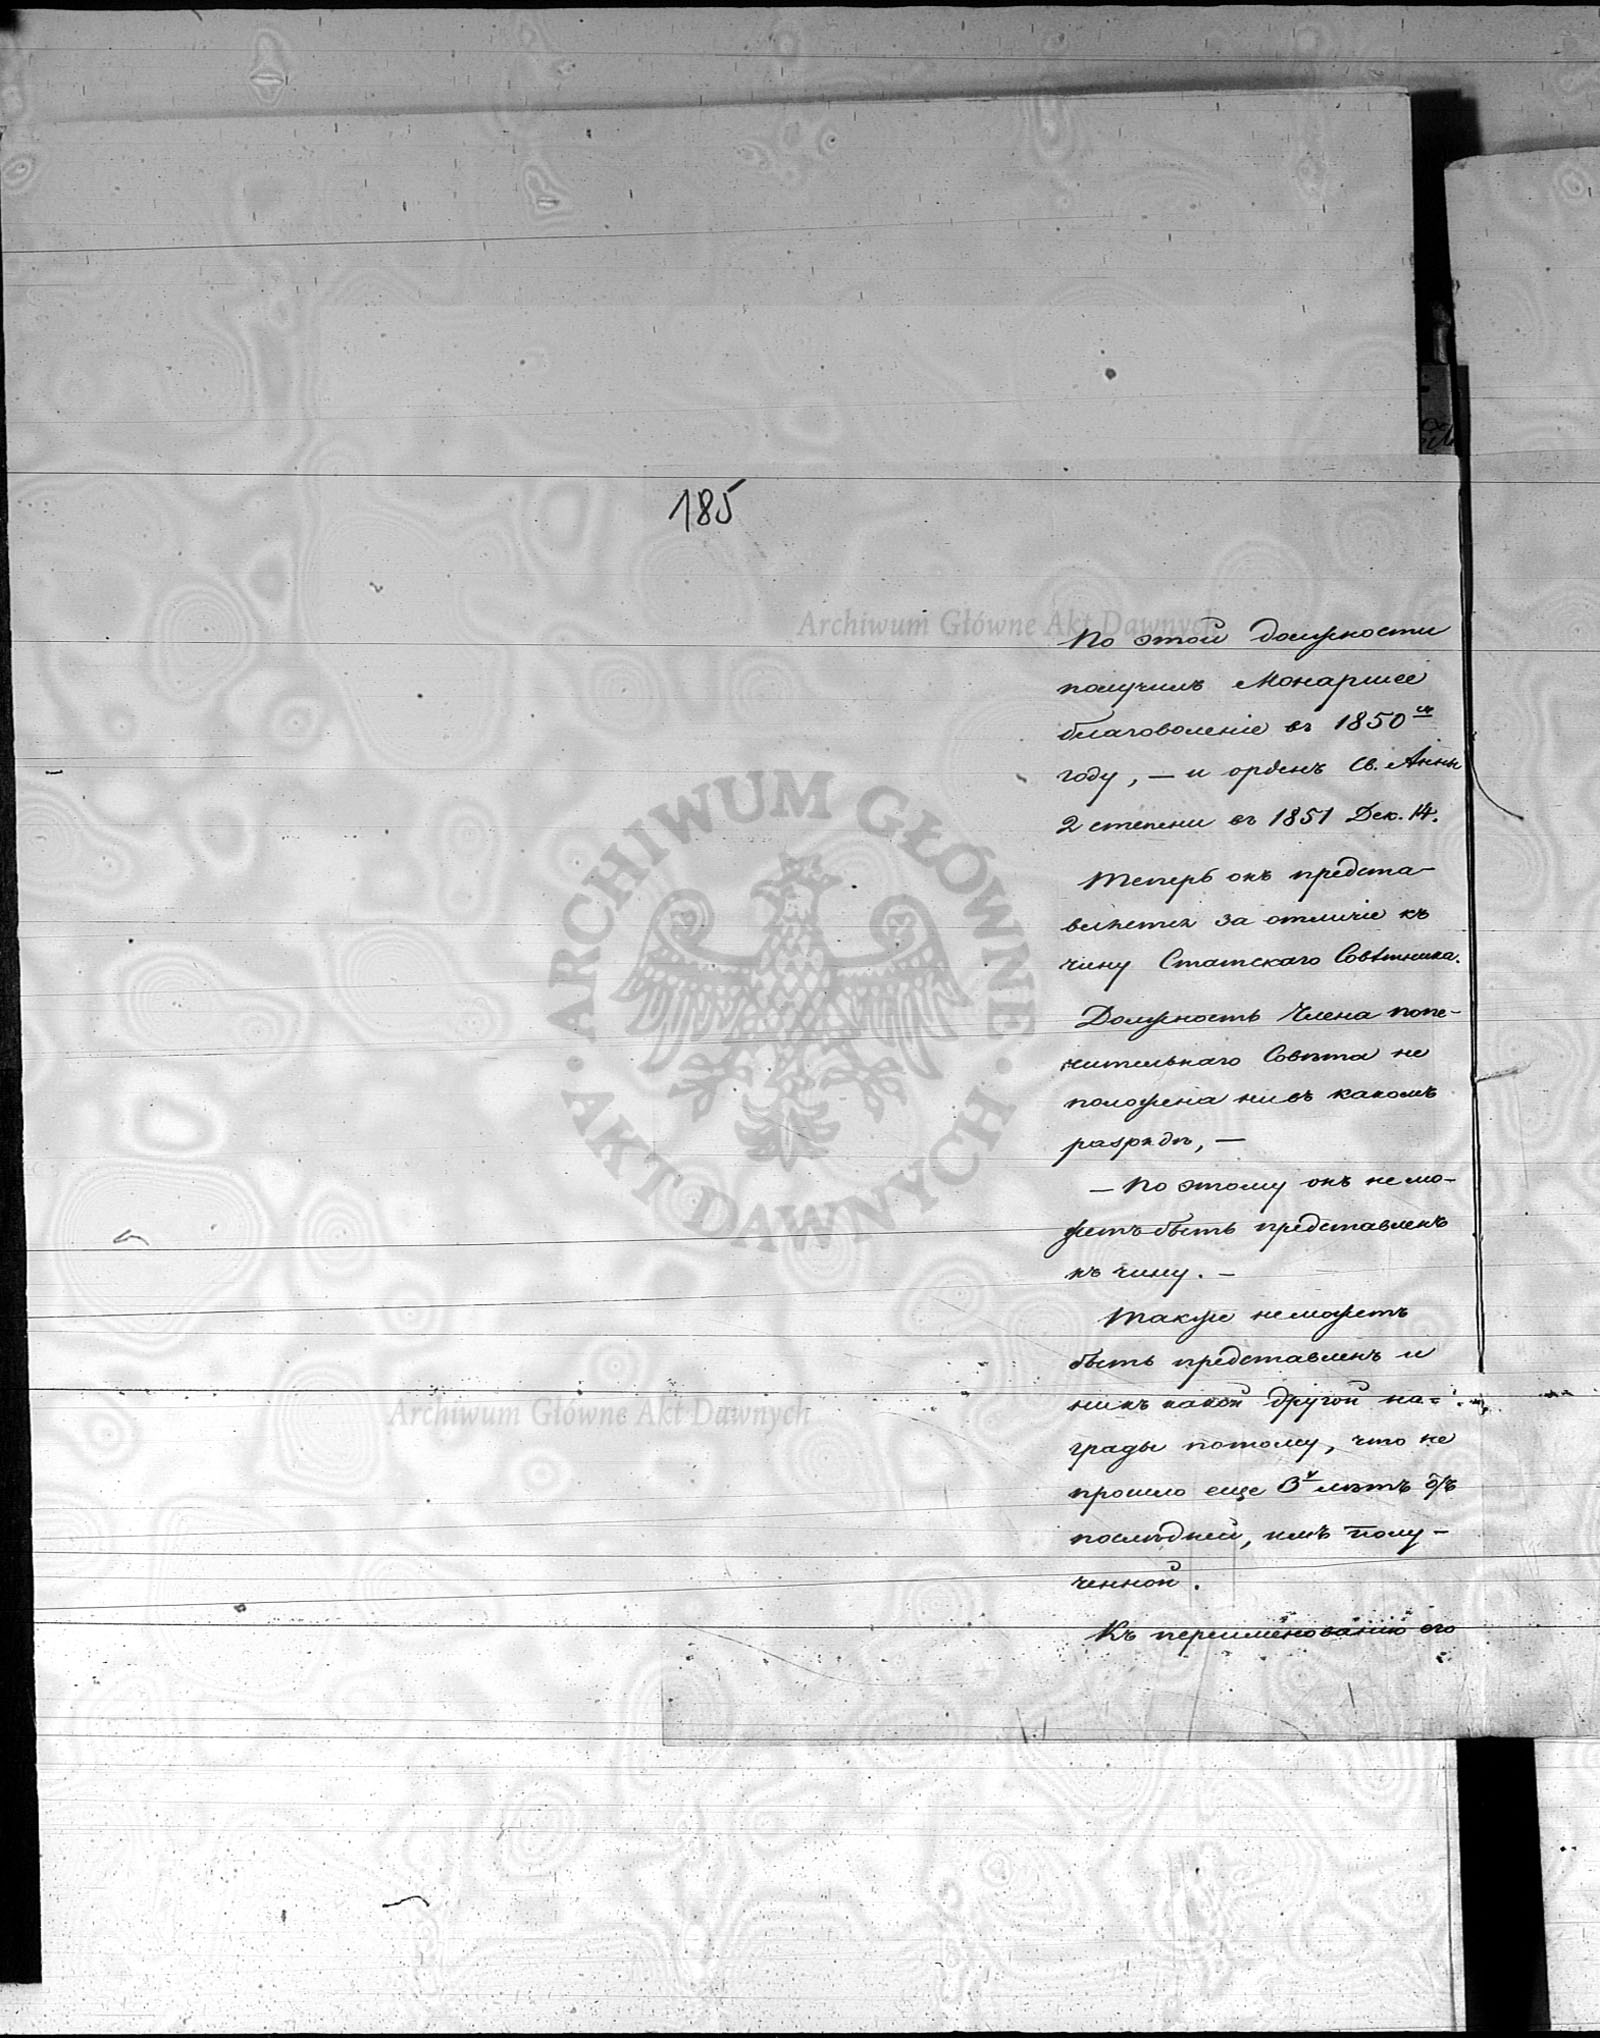 185
По этой должности
получилъ Монаршее
благоволеніе въ 1850 м
году, — и орденъ Св. Анны
2 степени въ 1851 Дек. 14.
Теперь онъ предста-
вляется за отличіе къ
чину Статскаго Совѣтника.
Должность Члена попе-
чительнаго Совѣта не
положена ни въ какомъ
разрядѣ, —
— По этому онъ не мо-
жетъ быть представленъ
къ чину. —
Также не можетъ
быть представленъ и
ни къ какой другой на=
грады потому, что не
прошло еще 3х лѣтъ отъ
послѣдней, имъ полу-
ченной.
Къ переименованію его
Archiwum Główne Akt Dawnych
ARCHIWUM GŁÓWNE · AKT DAWNYCH ·
Archiwum Główne Akt Dawnych